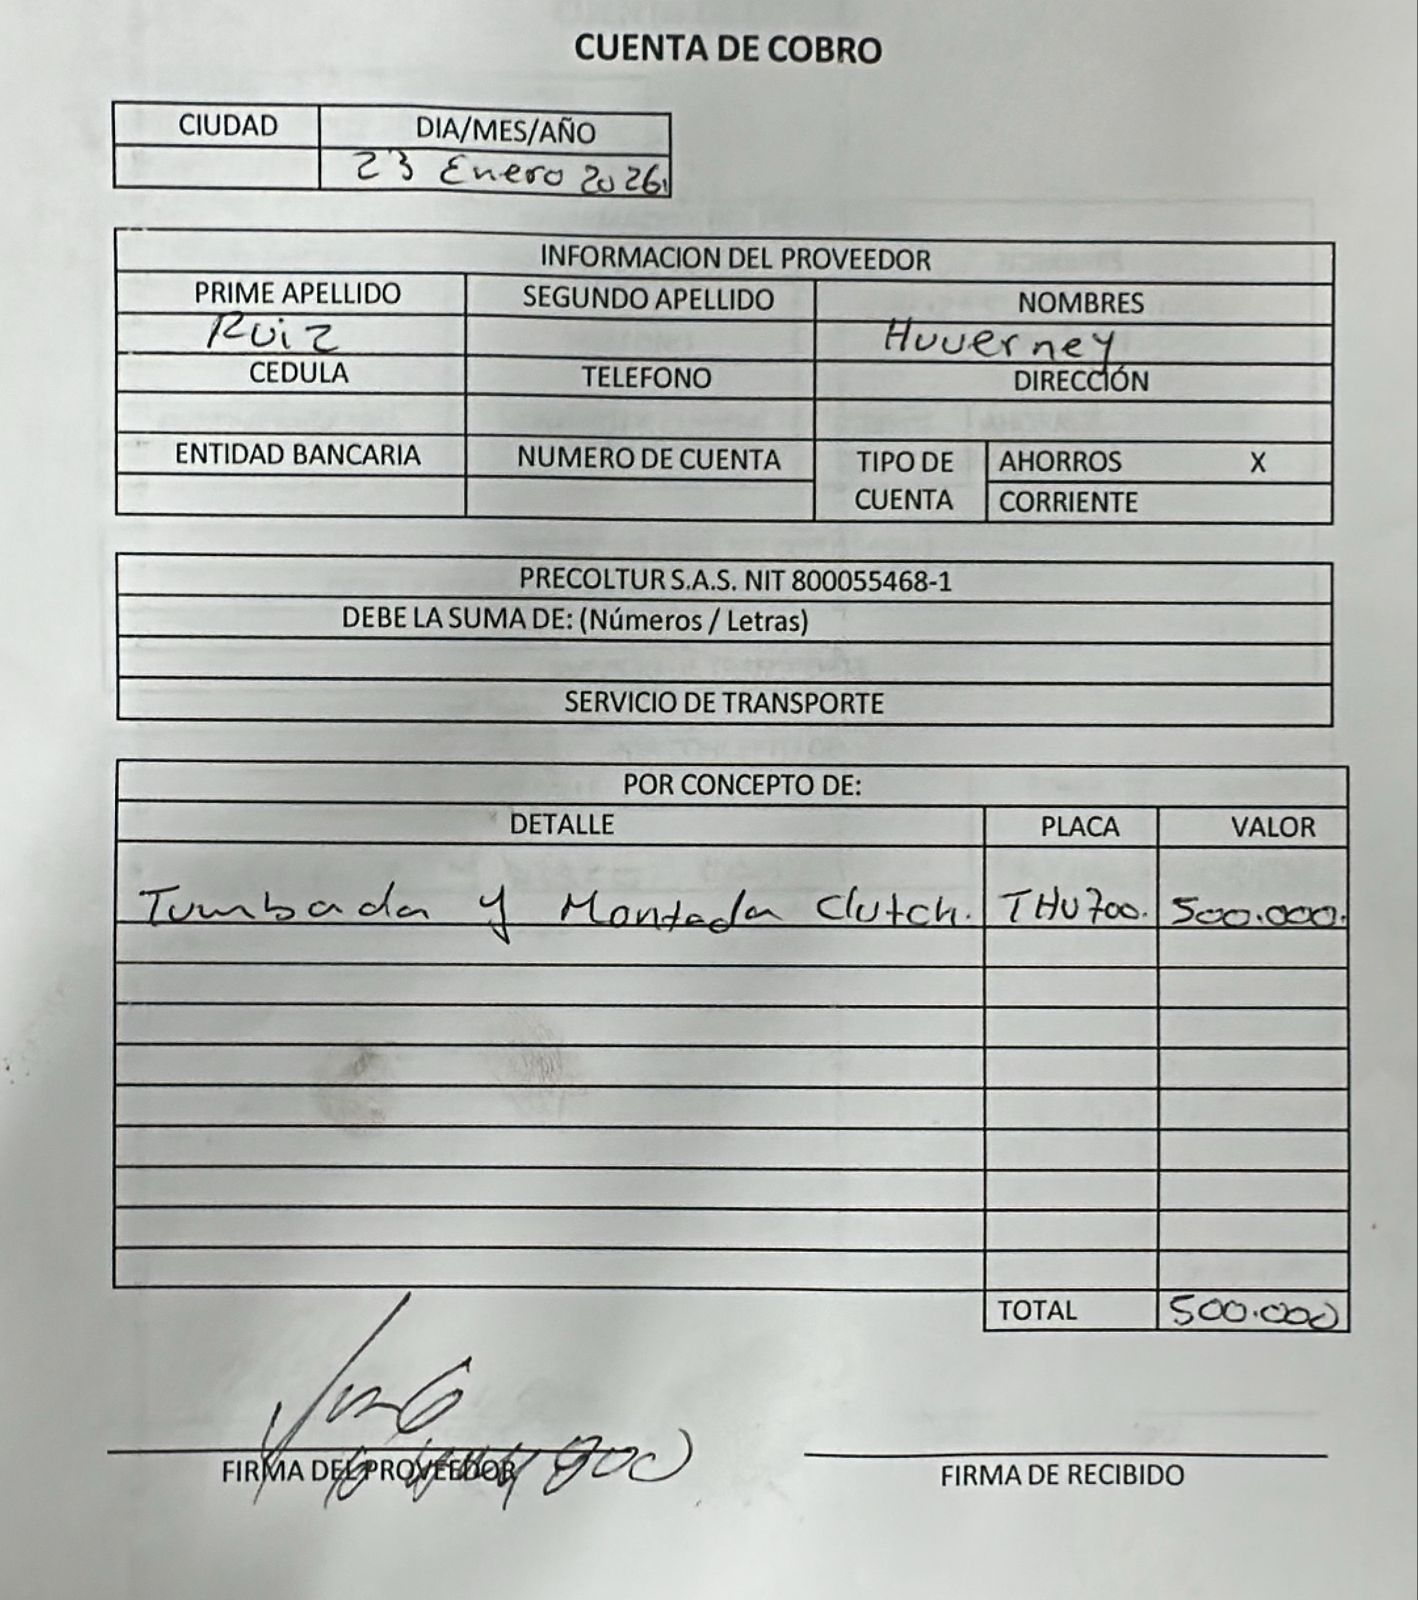 CUENTA DE COBRO
CIUDAD DIA/MES/AÑO
23 Enero 2026
INFORMACION DEL PROVEEDOR
PRIME APELLIDO SEGUNDO APELLIDO NOMBRES
Ruiz Huuerney
CEDULA TELEFONO DIRECCIÓN
ENTIDAD BANCARIA NUMERO DE CUENTA TIPO DE CUENTA AHORROS X
CORRIENTE
PRECOLTUR S.A.S. NIT 800055468-1
DEBE LA SUMA DE: (Números / Letras)
SERVICIO DE TRANSPORTE
POR CONCEPTO DE:
DETALLE PLACA VALOR
Tumbada y Montada Clutch. THU700. 500.000.
TOTAL 500.000
FIRMA DEL PROVEEDOR FIRMA DE RECIBIDO